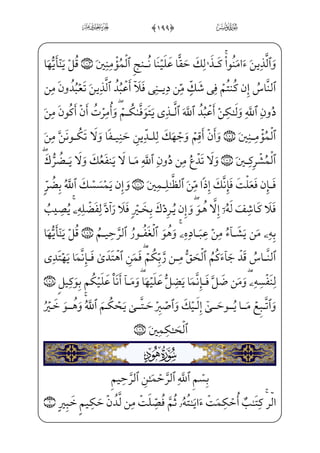 سُورَةُ يُونُسَ ﴿١٩٩﴾ الجُزْءُ الحَادِي عَشَرَ
وَٱلَّذِينَ ءَامَنُوا۟ ۚ كَذَٰلِكَ حَقًّا عَلَيْنَا نُنجِ ٱلْمُؤْمِنِينَ ۝١٠٣ قُلْ يَٰٓأَيُّهَا
ٱلنَّاسُ إِن كُنتُمْ فِى شَكٍّ مِّن دِينِى فَلَآ أَعْبُدُ ٱلَّذِينَ تَعْبُدُونَ مِن
دُونِ ٱللَّهِ وَلَٰكِنْ أَعْبُدُ ٱللَّهَ ٱلَّذِى يَتَوَفَّىٰكُمْ ۖ وَأُمِرْتُ أَنْ أَكُونَ مِنَ
ٱلْمُؤْمِنِينَ ۝١٠٤ وَأَنْ أَقِمْ وَجْهَكَ لِلدِّينِ حَنِيفًا وَلَا تَكُونَنَّ مِنَ
ٱلْمُشْرِكِينَ ۝١٠٥ وَلَا تَدْعُ مِن دُونِ ٱللَّهِ مَا لَا يَنفَعُكَ وَلَا يَضُرُّكَ ۖ
فَإِن فَعَلْتَ فَإِنَّكَ إِذًا مِّنَ ٱلظَّٰلِمِينَ ۝١٠٦ وَإِن يَمْسَسْكَ ٱللَّهُ بِضُرٍّ
فَلَا كَاشِفَ لَهُۥٓ إِلَّا هُوَ ۖ وَإِن يُرِدْكَ بِخَيْرٍ فَلَا رَآدَّ لِفَضْلِهِۦ ۚ يُصِيبُ
بِهِۦ مَن يَشَآءُ مِنْ عِبَادِهِۦ ۚ وَهُوَ ٱلْغَفُورُ ٱلرَّحِيمُ ۝١٠٧ قُلْ يَٰٓأَيُّهَا
ٱلنَّاسُ قَدْ جَآءَكُمُ ٱلْحَقُّ مِن رَّبِّكُمْ ۖ فَمَنِ ٱهْتَدَىٰ فَإِنَّمَا يَهْتَدِى
لِنَفْسِهِۦ ۖ وَمَن ضَلَّ فَإِنَّمَا يَضِلُّ عَلَيْهَا ۖ وَمَآ أَنَا۠ عَلَيْكُم بِوَكِيلٍ ۝١٠٨
وَٱتَّبِعْ مَا يُوحَىٰٓ إِلَيْكَ وَٱصْبِرْ حَتَّىٰ يَحْكُمَ ٱللَّهُ ۚ وَهُوَ خَيْرُ
ٱلْحَٰكِمِينَ ۝١٠٩
سُورَةُ هُودٍ
بِسْمِ ٱللَّهِ ٱلرَّحْمَٰنِ ٱلرَّحِيمِ
الٓر ۚ كِتَٰبٌ أُحْكِمَتْ ءَايَٰتُهُۥ ثُمَّ فُصِّلَتْ مِن لَّدُنْ حَكِيمٍ خَبِيرٍ ۝١